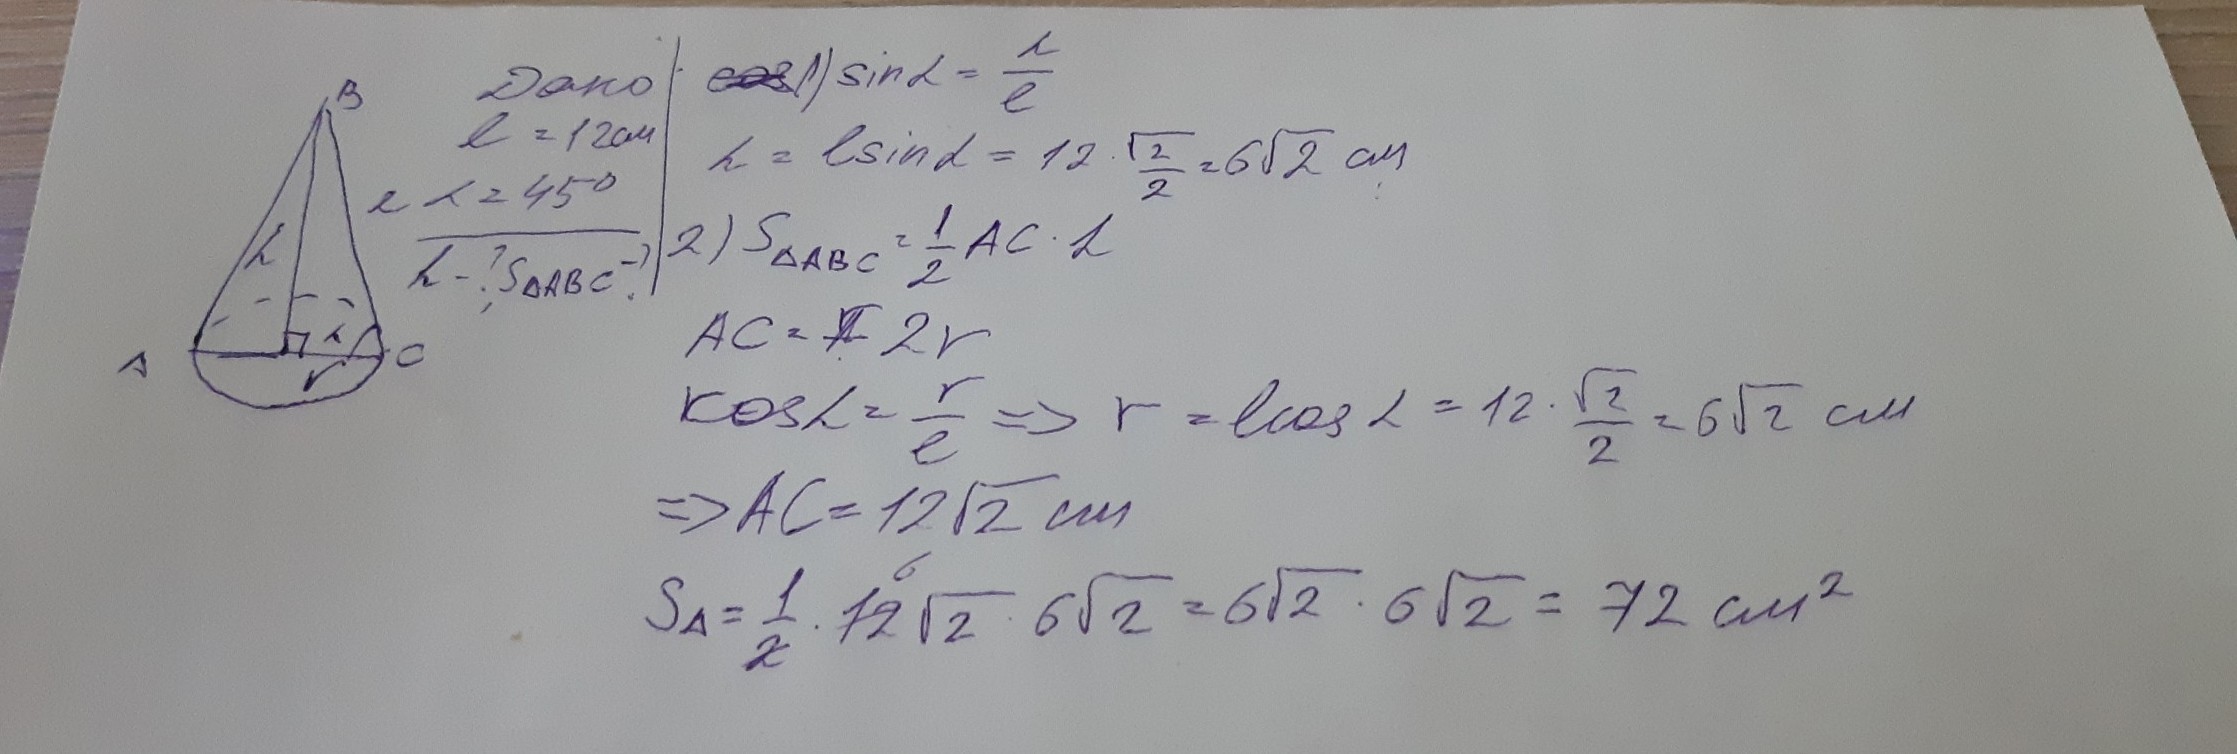 B
A
C
h
l
r
α
Дано
l = 12см
α = 45°
h - ? S△ABC - ?
1) sinα = h/l
h = l sinα = 12 · √2/2 = 6√2 см
2) S△ABC = 1/2 AC · h
AC = 2r
cosα = r/l => r = l cosα = 12 · √2/2 = 6√2 см
=> AC = 12√2 см
S△ = 1/2 · 12 6 √2 · 6√2 = 6√2 · 6√2 = 72 см²